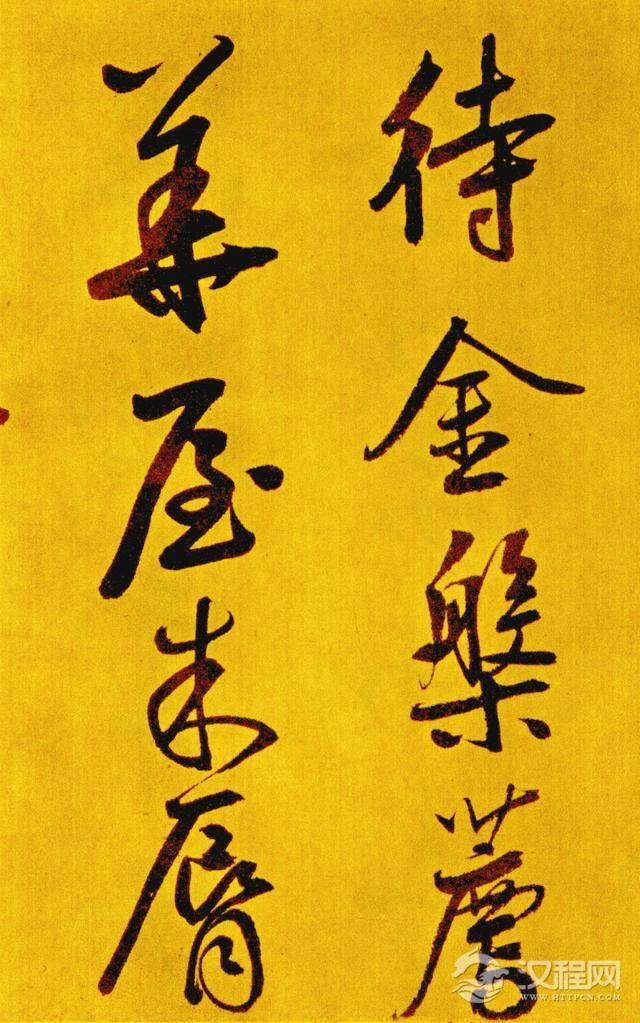 待金槃薦
華屋朱脣
汉程网
WWW.HTTPCN.COM